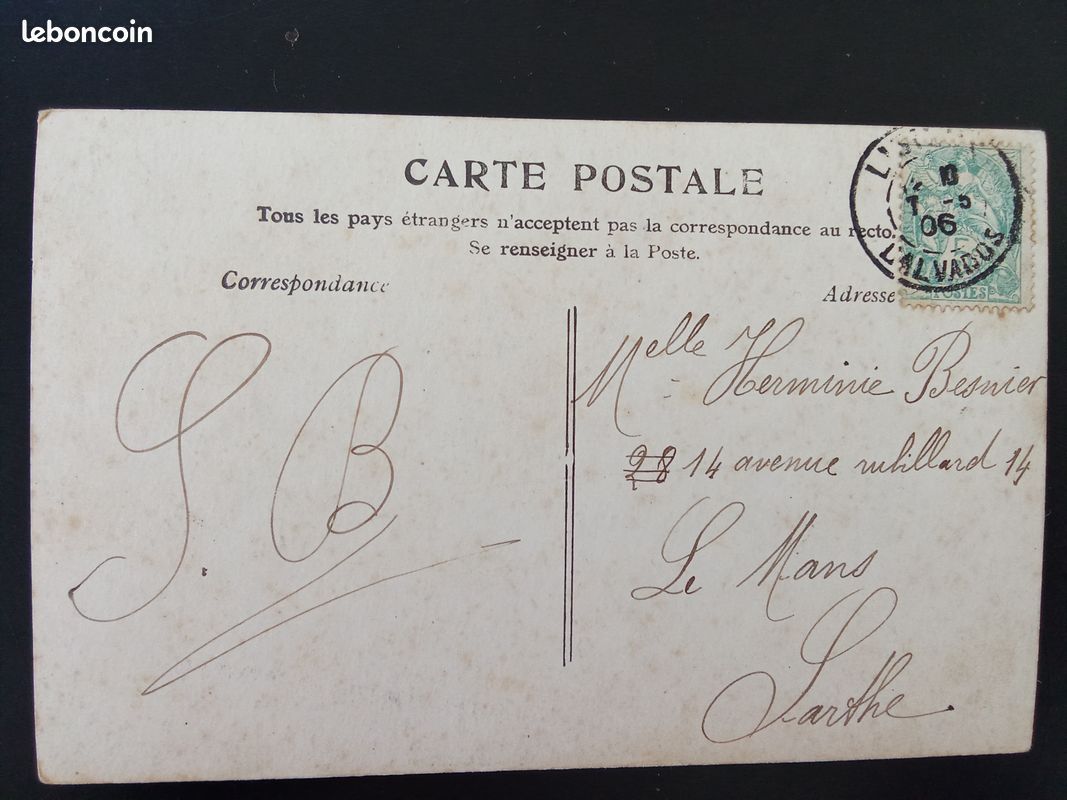 leboncoin
CARTE POSTALE
Tous les pays étrangers n'acceptent pas la correspondance au recto.
Se renseigner à la Poste.
Correspondance
Adresse
06
CALVADOS
POSTES
S. B
Melle Herminie Besnier
28 14 avenue rubillard 14
Le Mans
Sarthe.